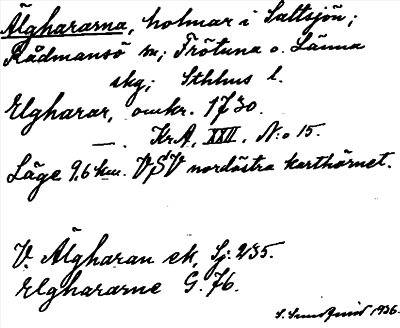 Älghararna, holmar i Saltsjön;
Rådmansö sn; Frötuna o. Länna
skg; Sthlms l.
Elgharar, omkr. 1730.
— . KrA, XXII, N:o 15.
Läge 9,6 km. VSV nordöstra karthörnet.
V. Älgharan ek, Sj. 235.
Elghararne G. 76.
1936.